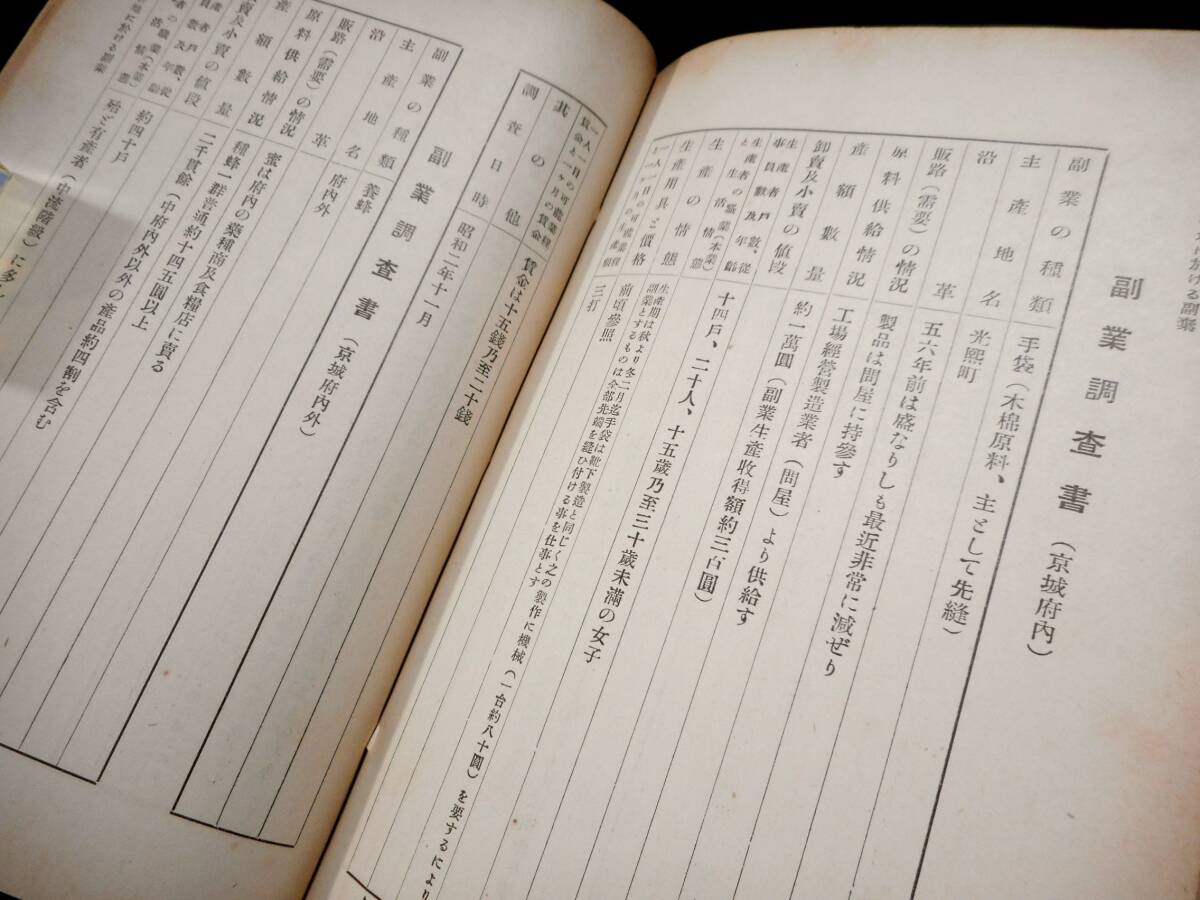 に於ける副業
副業調査書（京城府内）
副業の種類 手袋（木棉原料、主として先縫）
主産地名 光熙町
沿革 五六年前は盛なりしも最近非常に減ぜり
販路（需要）の情況 製品は問屋に持參す
原料供給情況 工場經營製造業者（問屋）より供給す
產額數量 約一萬圓（副業生產收得額約三百圓）
卸賣及小賣の値段
生產者數戶數、從事員數及年齡 十四戶、二十人、十五歲乃至三十歲未滿の女子
生產者の職業（本業）と生活情態
生產の情態 生產期は秋より冬二月迄手袋は靴下製造と同じく之の製作に機械（一台約八十圓）を要するにより
副業とするものは全部先端を縫ひ付ける事を仕事とす
生產用具と價格 前項參照
三打
一人一日の可能業程
賃金と一ヶ月の賃金 賃金は十五錢乃至二十錢
其の他
調査日時 昭和二年十一月
副業調査書（京城府內外）
副業の種類 養蜂
主産地名 府內外
沿革
販路（需要）の情況 蜜は府內の藥種商及食糧店に賣る
原料供給情況 種蜂一群普通約十四五圓以上
產額數量 二千貫餘（中府內外以外の產品約四割を含む
賣及小賣の値段
者數戶數、從 約四十戶
殆ど有產者（中流階級）に多し
地に於ける副業